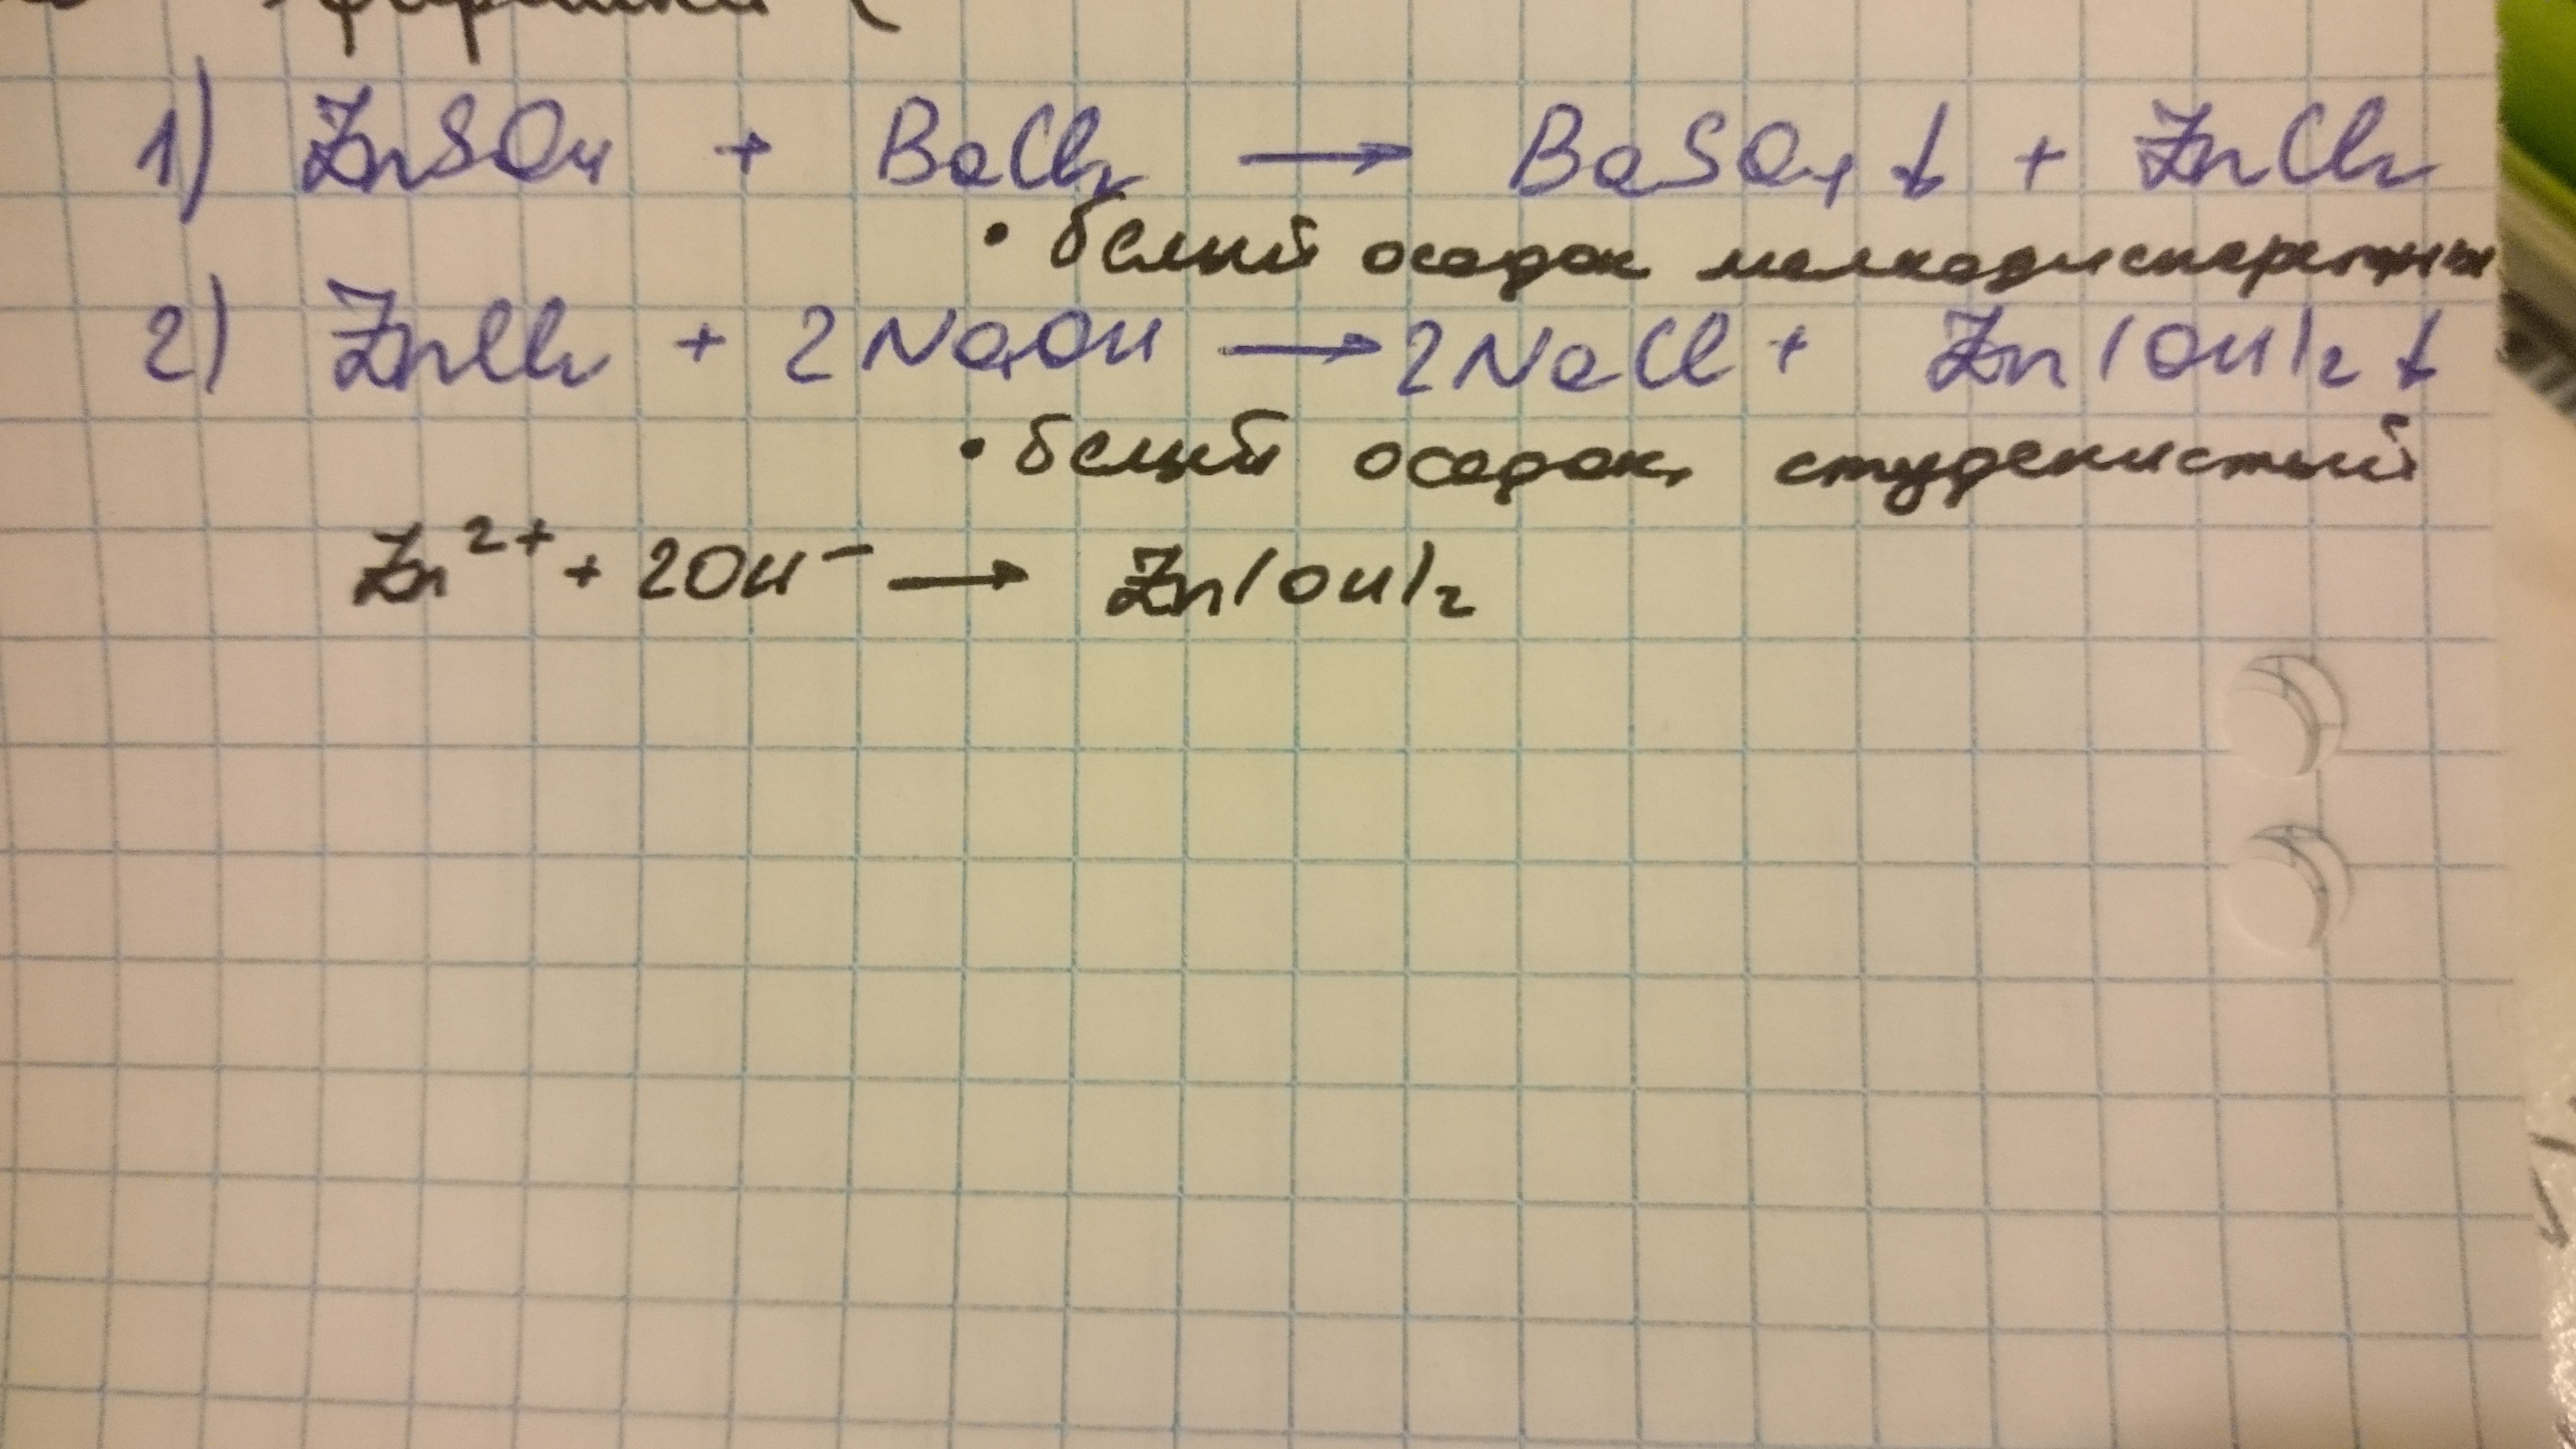 1) ZnSO₄ + BaCl₂ → BaSO₄ ↓ + ZnCl₂
• белый осадок мелкодисперсный
2) ZnCl₂ + 2NaOH → 2NaCl + Zn(OH)₂ ↓
• белый осадок студенистый
Zn²⁺ + 2OH⁻ → Zn(OH)₂